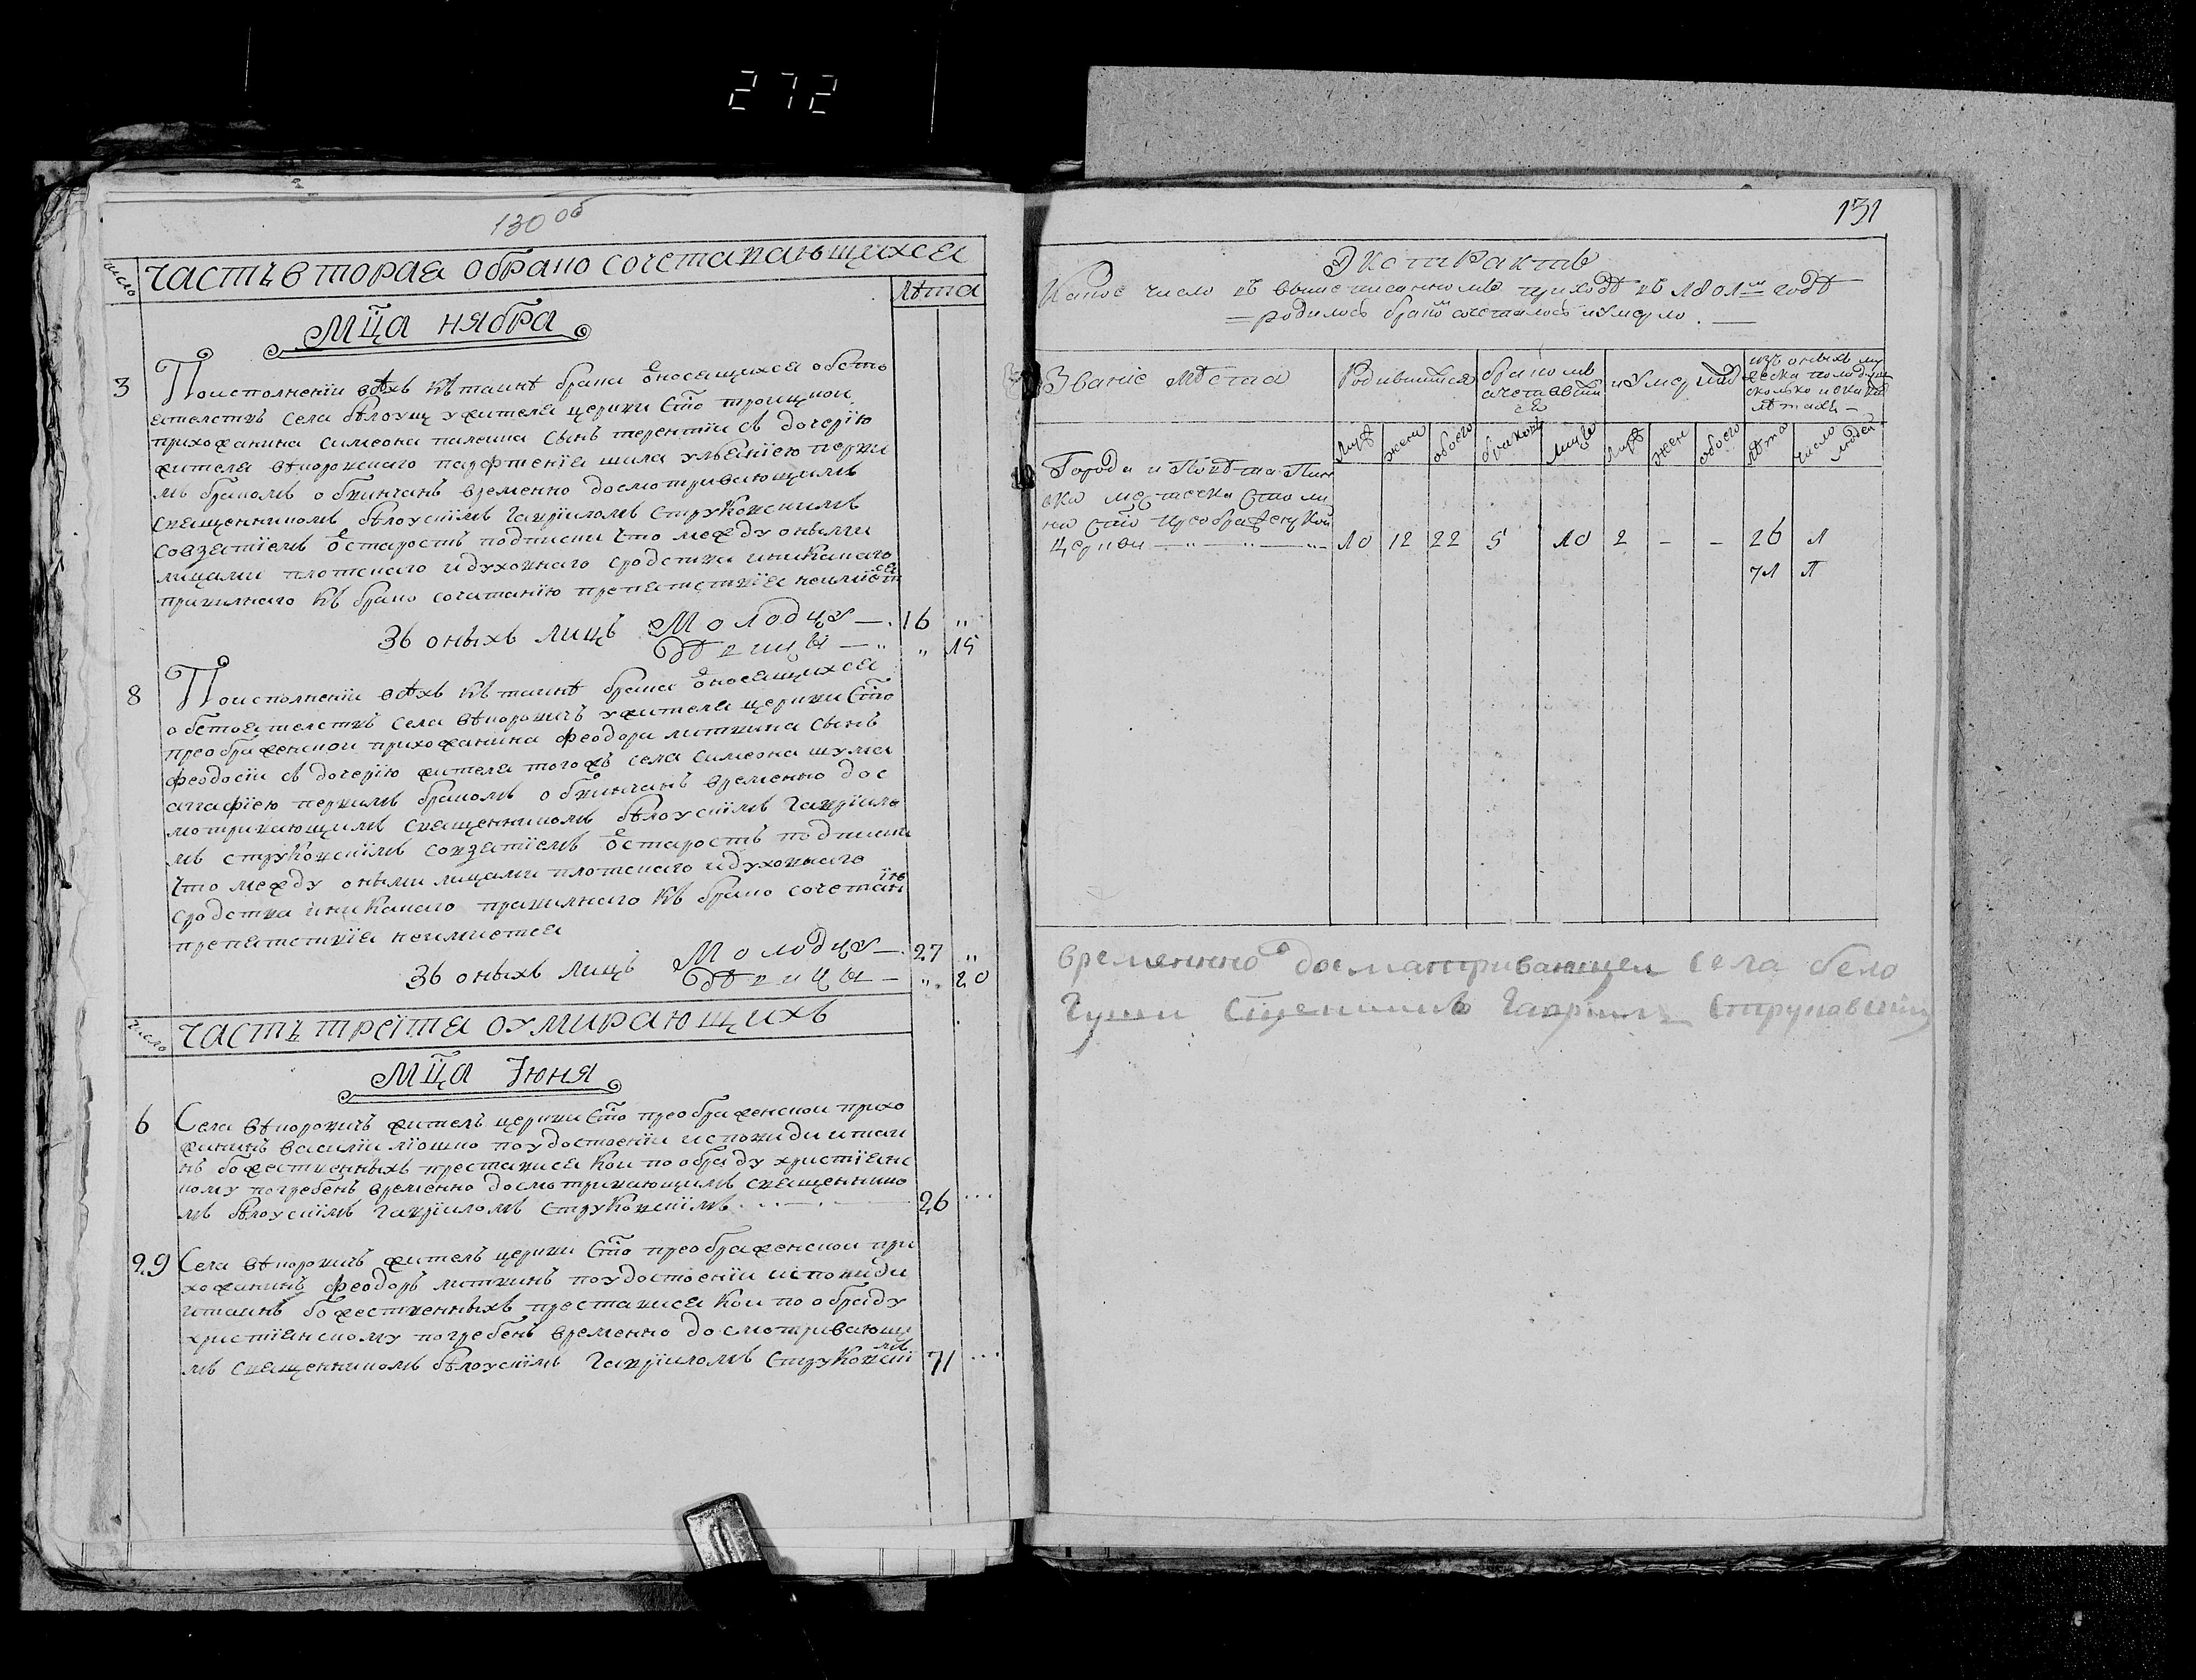 272
130 об
число
часть вторая обрано сочетавающихся
лѣта
Мц̃а нября
3
По исполненіи всѣхъ къ таинѣ брака ѿносящихся обсто
ятелствъ села бѣлоуш ужителя церкви Сто троицкои
прихожанина симеона сынъ терентіи съ дочерію
жителя вѣкоровскаго парфтенія шила ульяніею первы
мъ бракомъ обвинчанъ временно досмотривающимъ
священникомъ бѣлоускімъ гавріиломъ Струковскимъ
совзятіемъ ѿ старостъ подписки что между оными
лицами плотскаго идуховнаго сродства иникакаго
правилнаго къ брако сочитанію препятствія неимѣется
Зъ оныхъ лицъ Молодцу — 16 „
Дѣвицы — „ 15
8
По исполненіи всѣхъ къ таинѣ брака ѿносящихся
обстоятелствъ села вѣкоровичъ ужителя церкви Сто
преображенскои прихожанина феодора литвина сынъ
феодосіи съ дочерію жителя тогожъ села симеона шума
агафіею первимъ бракомъ обвинчанъ временно дос
мотривающимъ священникомъ бѣлоускімъ гавріило
мъ струковскімъ совзятіемъ ѿ старостъ подписки
что между оными лицами плотскаго идуховнаго
сродства иникакаго правилнаго къ брако сочетанію
препятствія неимиется
Зъ оныхъ лицъ Молодцу — 27 „
Дѣвицы — „ 20
число
часть третя оумирающихъ
Мц̃а Іюня
6
Села вѣкоровичъ житель церкви Сто преображенскои прихо
жанинъ василіи по удостоеніи исповиди итаи
нъ божественныхъ преставися кои по обряду христіянс
кому погребенъ временно досмотривающимъ священнико
мъ бѣлоускімъ гавріиломъ струковскімъ 26
29
Села вѣкоровичъ житель церкви Сто преображенскои при
хожанинъ феодоръ литвинъ по удостоеніи исповиди
итаинъ божественныхъ преставися кои по обряду
христіянскому погребенъ временно досмотривающи
мъ священникомъ бѣлоускімъ гавріиломъ Струковскімъ 71
131
Экстрактъ
Какое число въ вышеписанномъ приходѣ въ 1801м годѣ
родилось бракѡ сочеталось и умерло.
Званіе мѣста
Родившихся
бракомъ сочетавших ся
и умерших
изъ оныхъ му ческа полу душ сколько и в каких лѣтахъ
муж жен обоего браковъ лицъ муж жен обоего лѣта число людей
Города и Повѣта Пин
ска местечка Столи
на Сто Преображенской
церкви 10 12 22 5 10 2 - - 26 1
71 1
временно досматривающеи села бело
гуши Сщенникъ Гавриилъ Струковскій